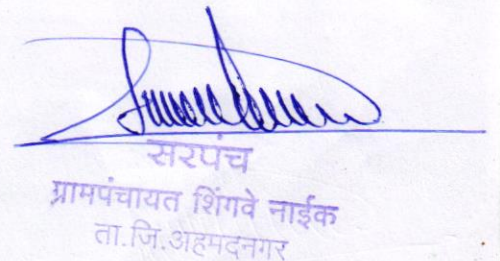 सरपंच
ग्रामपंचायत शिंगवे नाईक
ता.जि.अहमदनगर